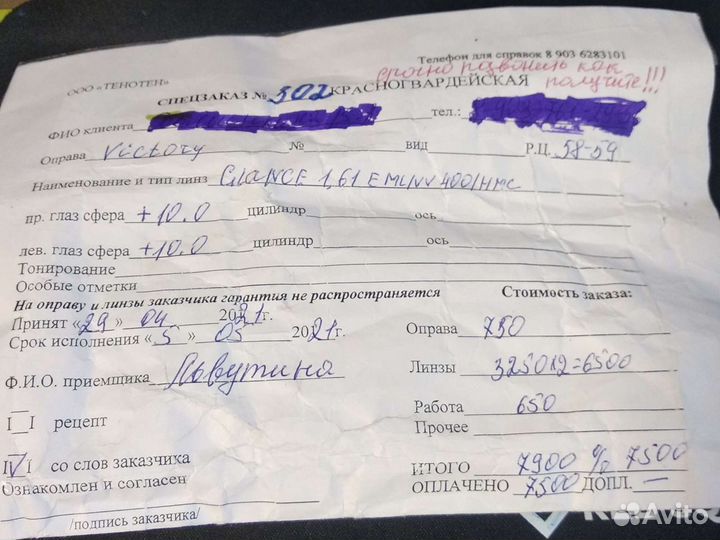 Телефон для справок 8 903 6283101
ООО «ТЕНОТЕН»
срочно позвонить как получите!!!
СПЕЦЗАКАЗ № 302 КРАСНОГВАРДЕЙСКАЯ
ФИО клиента тел.:
Оправа Victory № вид Р.Ц. 58-59
Наименование и тип линз GLANCE 1,61 EMI UV 400/HMC
пр. глаз сфера +10.0 цилиндр ось
лев. глаз сфера +10.0 цилиндр ось
Тонирование
Особые отметки
На оправу и линзы заказчика гарантия не распространяется
Стоимость заказа:
Принят «29» 04 2021г.
Срок исполнения «5» 05 2021г.
Оправа 750
Ф.И.О. приемщика
Линзы 3250x2=6500
I_I рецепт
Работа 650
Прочее
I V I со слов заказчика
ИТОГО 7900 % 7500
Ознакомлен и согласен
ОПЛАЧЕНО 7500 ДОПЛ. —
/подпись заказчика/
Avito